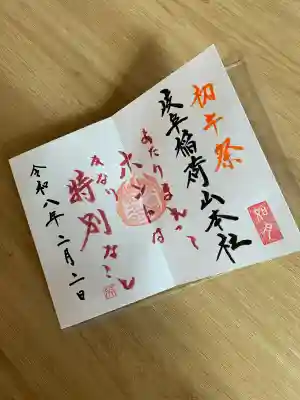 初午祭
稲荷山本社
如月
あたりまえって
ホントは
かなり
特別なこと
令和八年二月二日